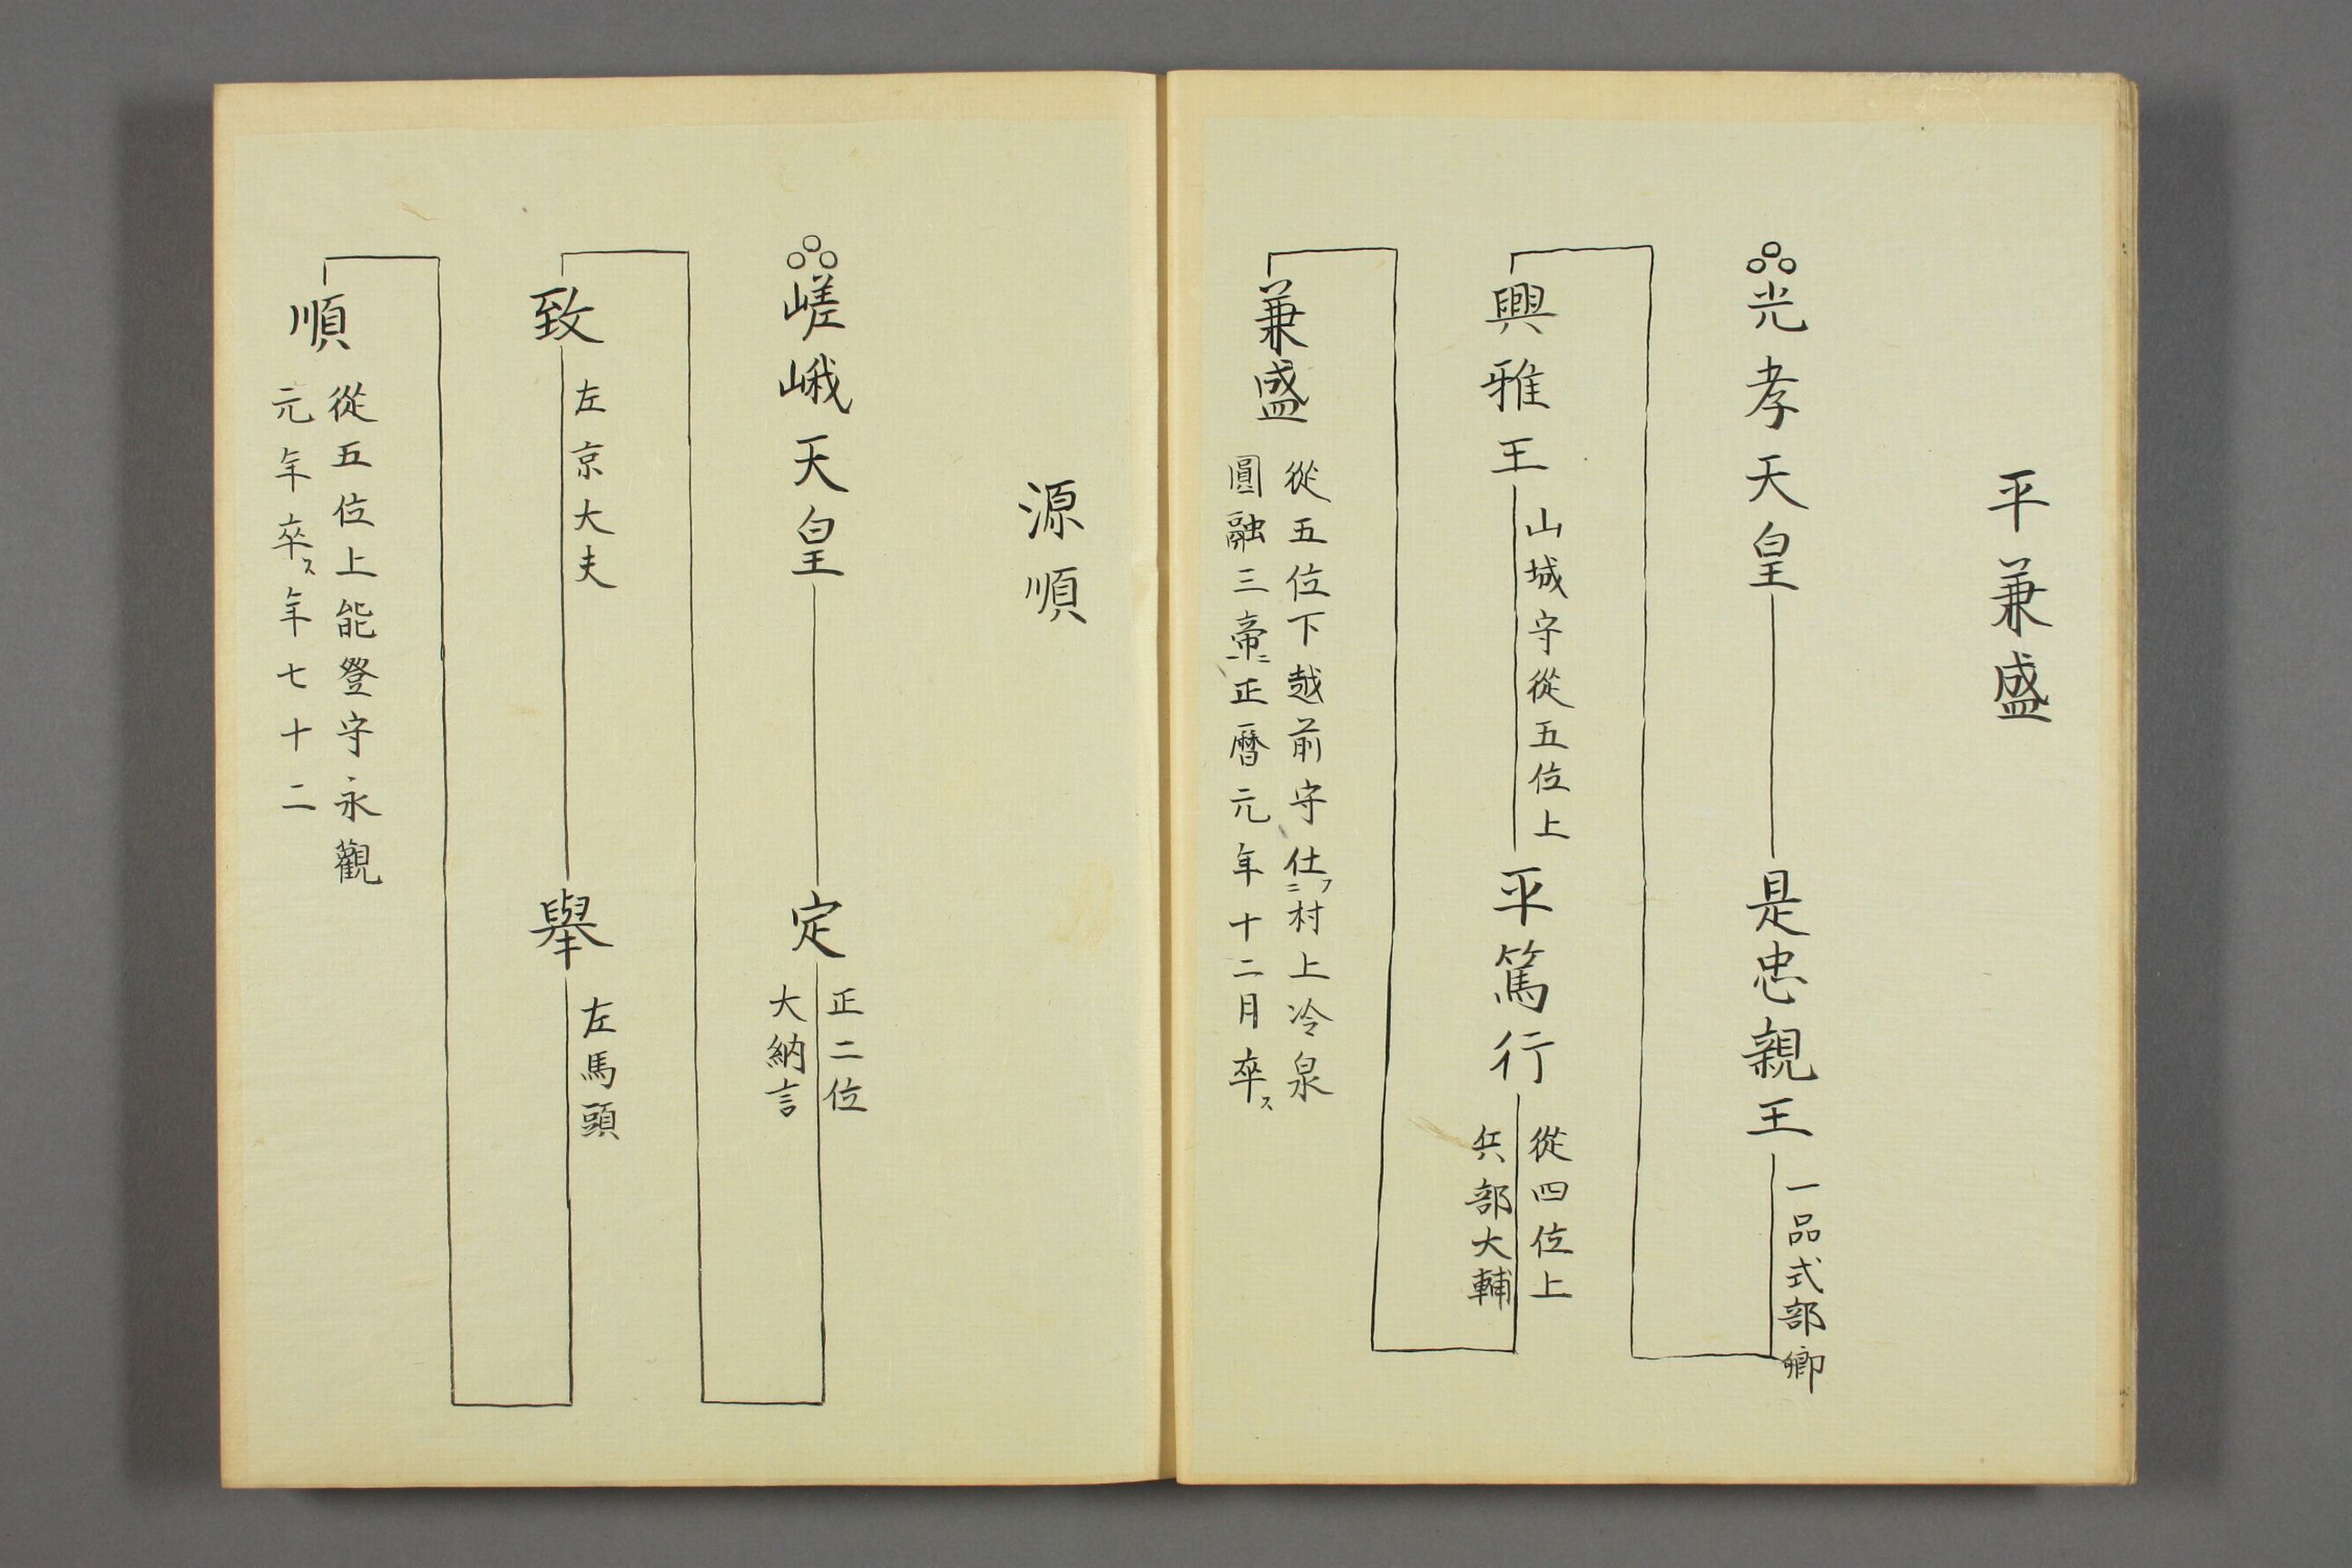 平兼盛
光孝天皇
是忠親王
一品式部卿
興雅王
山城守從五位上
平篤行
從四位上
兵部大輔
兼盛
從五位下越前守仕ニフ村上冷泉
圓融三帝ニ正曆元年十二月卒ス
源順
嵯峨天皇
定
正二位
大納言
致
左京大夫
舉
左馬頭
順
從五位上能登守永觀
元年卒ス年七十二